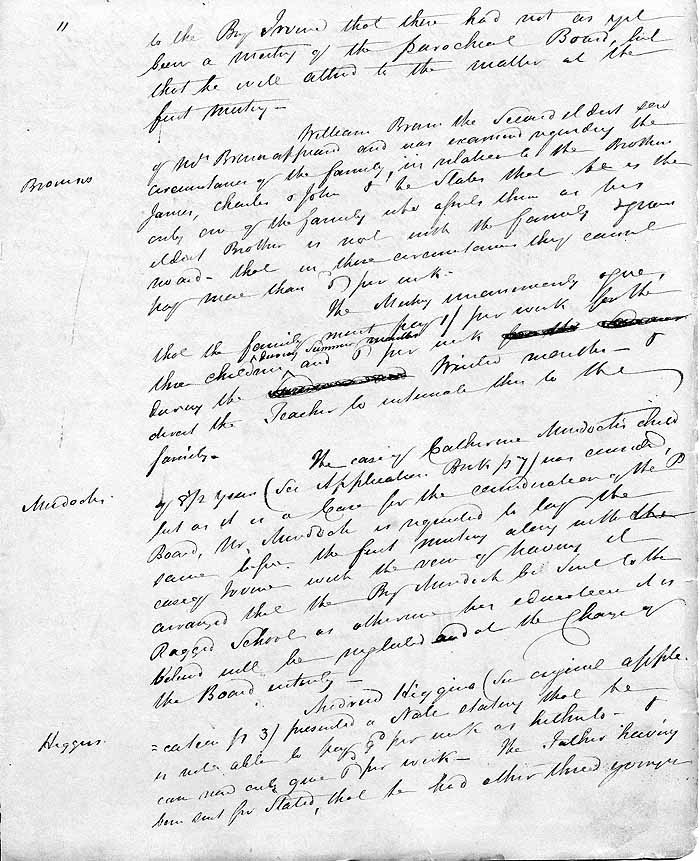 11
to the Boy Irvine that there had not as yet
been a meeting of the parochial Board, but
that he will attend to the matter at the
first meeting —
William Brown the Second eldest son
Browns
of Mrs Brown appeared and was examined regarding the
circumstances of the family, in relation to the Brothers
James, Charles & John & he States that he is the
only one of the family who assists them as his
eldest Brother is not with the family
that in these circumstances they cannot
pay more than 6d per week —
The Meeting unanimously agree,
that the family must pay 1/ per week for the
three children during Summer months and 6d per week
during the Winter months — &
direct the Teacher to intimate this to the
family —
The case of Catherine Murdoch's child
Murdochs
of 8½ years (See Application Book p 7) was considered,
but as it is a Case for the consideration of the P
Board, Mr. Murdoch is requested to lay the
same before the first Meeting along with the
case of Irvine with the view of having it
arranged that the Boy Murdoch be sent to the
Ragged School as otherwise his education it is
believed will be neglected and at the Charge of
the Board entirely —
Higgins (See original appli
Higgins
=cation p 3) presented a Note stating that he
is not able to pay 9d per week as hitherto — &
can now only give 6d per week — The Father having
been sent for Stated, that he had other three younger